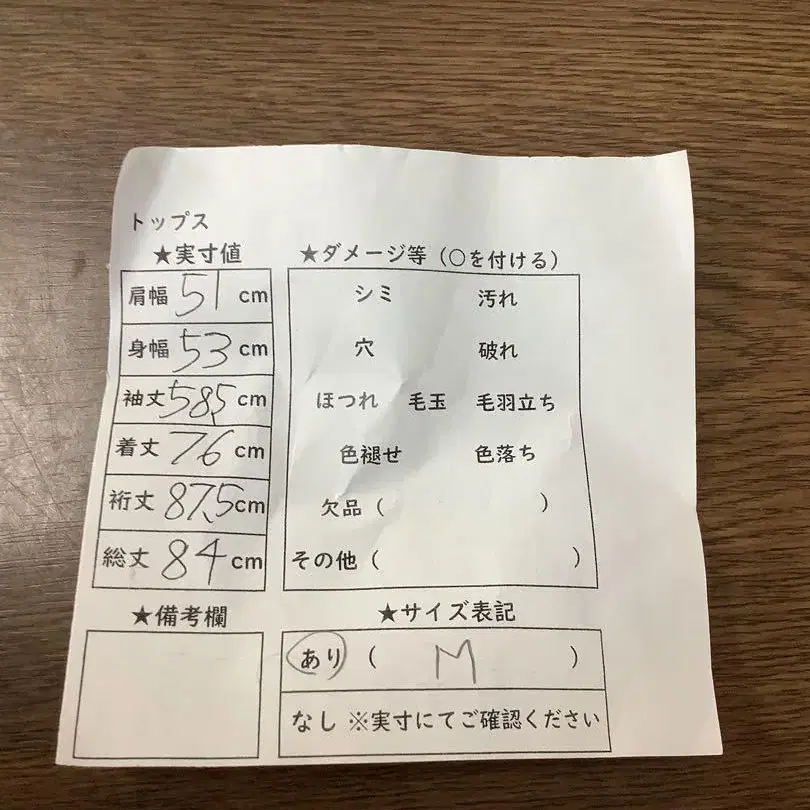 トップス
★実寸値
肩幅 51 cm
身幅 53 cm
袖丈 58.5 cm
着丈 76 cm
裄丈 87.5 cm
総丈 84 cm
★備考欄
★ダメージ等（○を付ける）
シミ 汚れ
穴 破れ
ほつれ 毛玉 毛羽立ち
色褪せ 色落ち
欠品（ ）
その他（ ）
★サイズ表記
あり（ M ）
なし ※実寸にてご確認ください